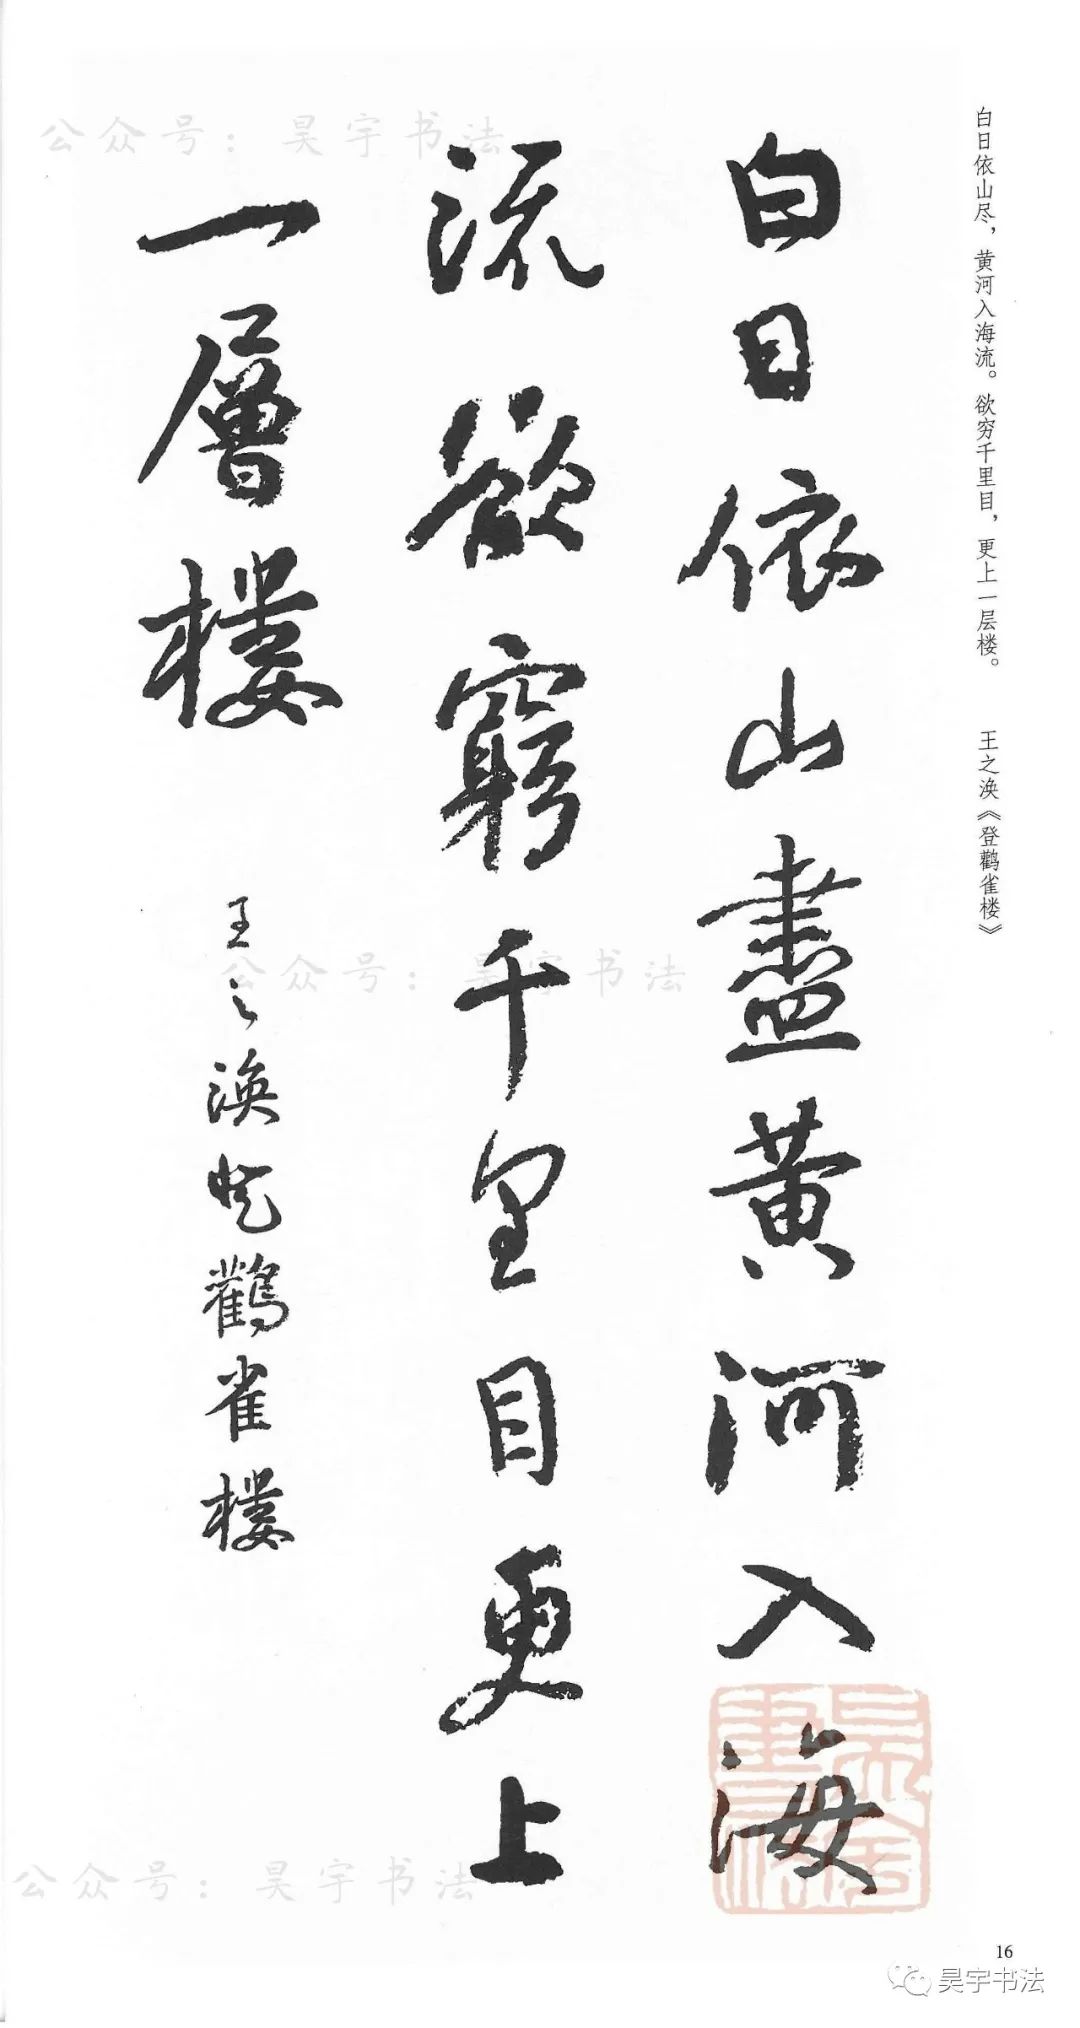 白日依山尽，黄河入海流。欲穷千里目，更上一层楼。 王之涣《登鹳雀楼》
白日依山盡黄河入海
流欲窮千里目更上
一層樓
王之涣登鸛雀樓
公众号：昊宇书法
公众号：昊宇书法
公众号：昊宇书法
昊宇書法
16
昊宇书法